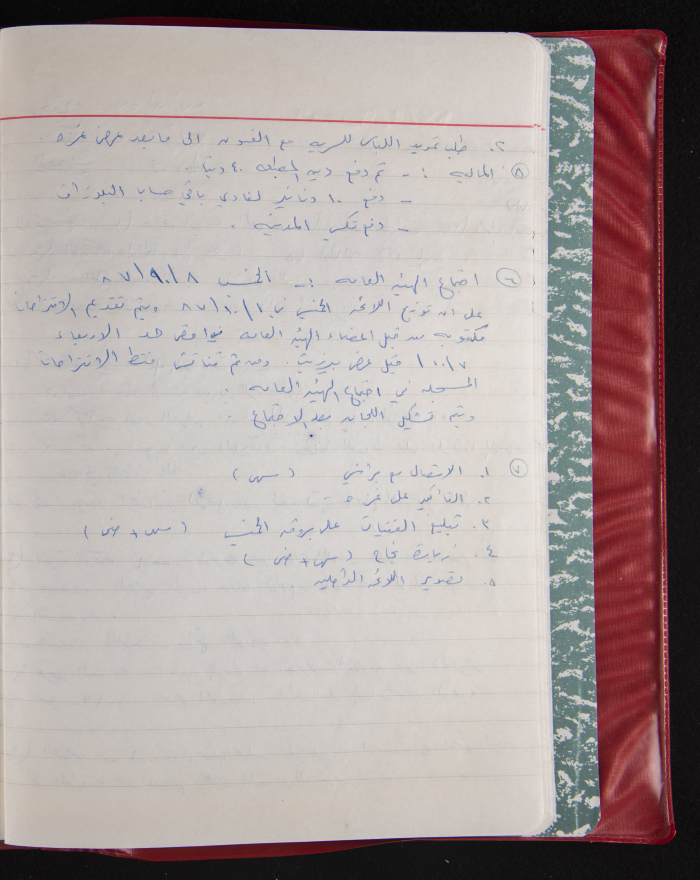 ٢. طلب تمديد اللباس للسريه مع الفنون الى ما بعد عرض غزة.
٥ الماليه :- تم دفع دين المطبعه ٤٠ دينار
- دفع ١٠ دنانير لفادي باقي حساب البلوزات
- دفع تكسي المدينة.
٦ اجتماع الهيئه العامه :- الخميس ٨/١٠/٨٧
على ان توزع اللائحه الخميس في ١/١٠/٨٧ ويتم تقديم الاقتراحات
مكتوبه من قبل اعضاء الهيئه العامه اقصى حد الاربعاء
٧/١٠ قبل عرض بيرزيت. ومن ثم تناقش فقط الاقتراحات
المسجله في اجتماع الهيئه العامه.
ويتم تشكيل اللجان بعد الاجتماع.
٧ ١. الاتصال مع (سهى)
٢. التأكيد على غزه
٣. تبليغ الفتيات على بروفه الخميس (سهى + ض)
٤. زيارة نجاح (سهى + ض)
٥. تصوير اللائحه الداخليه